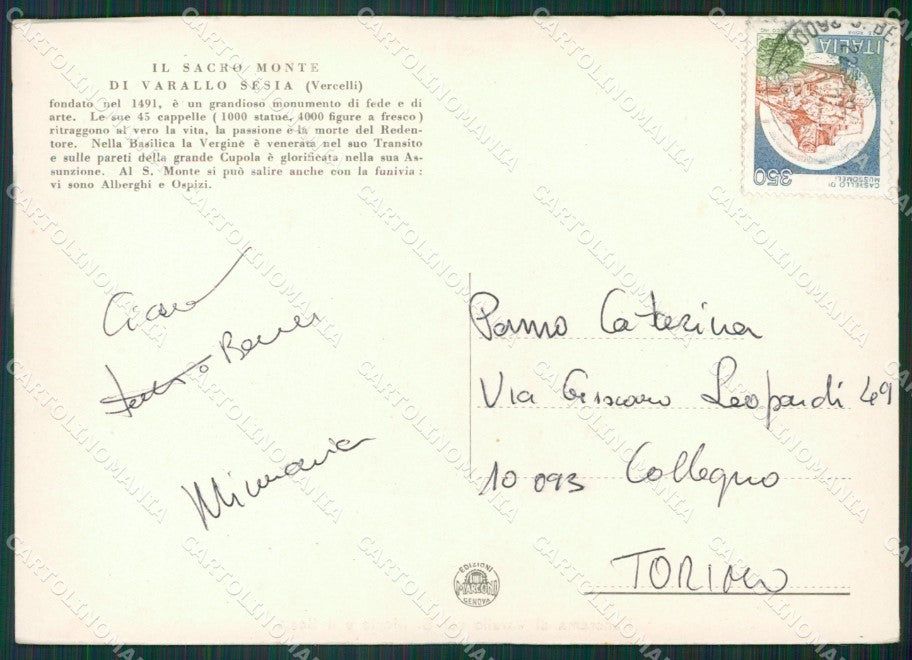 IL SACRO MONTE
DI VARALLO SESIA (Vercelli)
fondato nel 1491, è un grandioso monumento di fede e di
arte. Le sue 45 cappelle (1000 statue, 4000 figure a fresco)
ritraggono al vero la vita, la passione e la morte del Reden-
tore. Nella Basilica la Vergine è venerata nel suo Transito
e sulle pareti della grande Cupola è glorificata nella sua As-
sunzione. Al S. Monte si può salire anche con la funivia:
vi sono Alberghi e Ospizi.
ITALIA
350
CASTELLO DI
MUSSOMELI
Ciao
tutto Bene
Caterina
Via Leopardi 49
10093 Collegno
TORINO
EDIZIONI
MARCONI
GENOVA
CARTOLINOMANIA